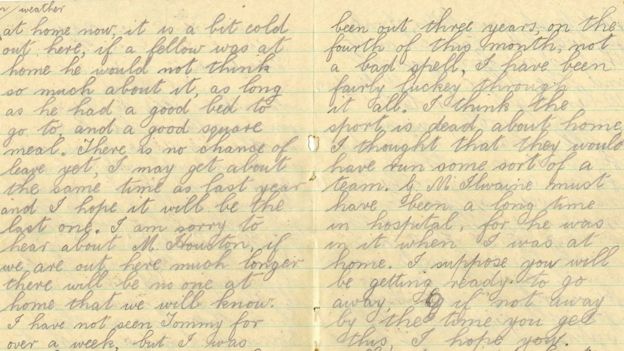 weather
at home now, it is a bit cold
out here, if a fellow was at
home he would not think
so much about it, as long
as he had a good bed to
go to, and a good square
meal. There is no chance of
leave yet, I may get about
the same time as last year
and I hope it will be the
last one. I am sorry to
hear about M. Houston, if
we are out here much longer
there will be no one at
home that we will know.
I have not seen Tommy for
over a week, but I was
been out three years on the
fourth of this month, not
a bad spell, I have been
fairly luckey through
it all. I think the
sport is dead about home,
I thought that they would
have run some sort of a
team. G McIlwaine must
have been a long time
in hospital, for he was
in it when I was at
home. I suppose you will
be getting ready to go
away, if not away
by the time you get
this, I hope you